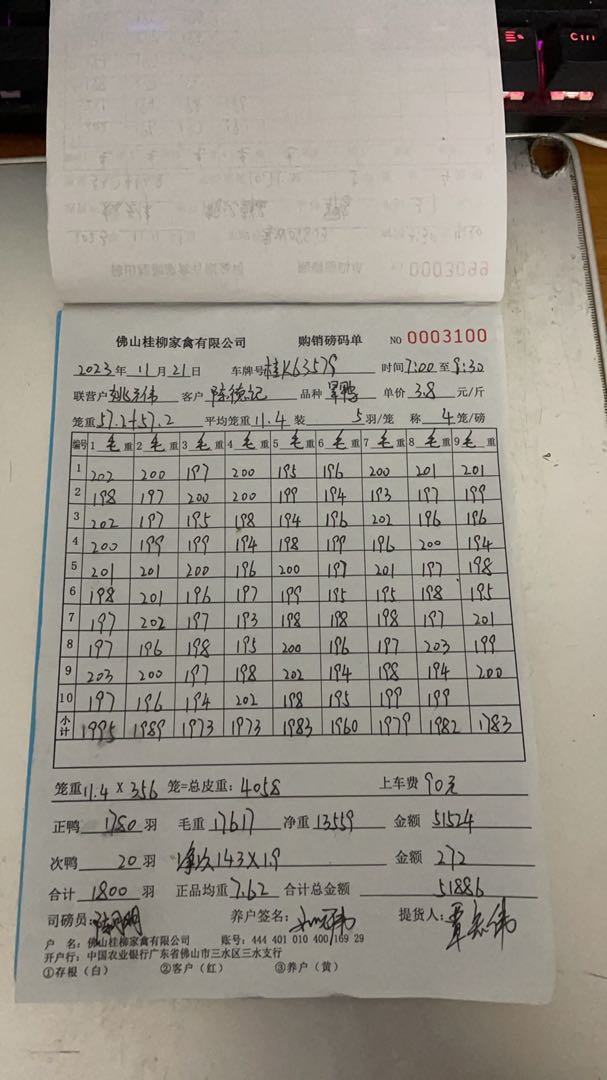 佛山桂柳家禽有限公司 购销磅码单 NO 0003100
2023年 11月21日 车牌号桂K63579 时间7:00至9:30
联营户 姚伟 客户 陈德记 品种 单价 3.8 元/斤
笼重57.2+57.2 平均笼重11.4 装 5 羽/笼 称 4 笼/磅
编号 1 毛重 2 毛重 3 毛重 4 毛重 5 毛重 6 毛重 7 毛重 8 毛重 9 毛重
1 202 200 197 200 195 196 200 201 201
2 198 197 200 200 199 194 193 197 199
3 202 197 195 198 194 196 202 196 196
4 200 199 199 194 198 199 196 200 194
5 201 201 200 196 200 197 201 197 198
6 198 201 196 197 199 195 195 198 195
7 197 202 197 193 198 198 198 197 201
8 197 196 198 195 200 196 197 203 199
9 203 200 197 198 202 194 198 194 200
10 197 196 194 202 198 195 199 199
小计 1995 1989 1973 1973 1983 1960 1979 1982 1783
笼重11.4×356 笼=总皮重:4058 上车费 90元
正鸭 1780 羽 毛重 17617 净重 13559 金额 51524
次鸭 20 羽 净次143×1.9 金额 272
合计 1800 羽 正品均重 7.62 合计总金额 51886
司磅员: 养户签名: 提货人: 覃志伟
户 名: 佛山桂柳家禽有限公司 账号: 444 401 010 400 169 29
开户行: 中国农业银行广东省佛山市三水区三水支行
①存根(白) ②客户(红) ③养户(黄)
Ctrl